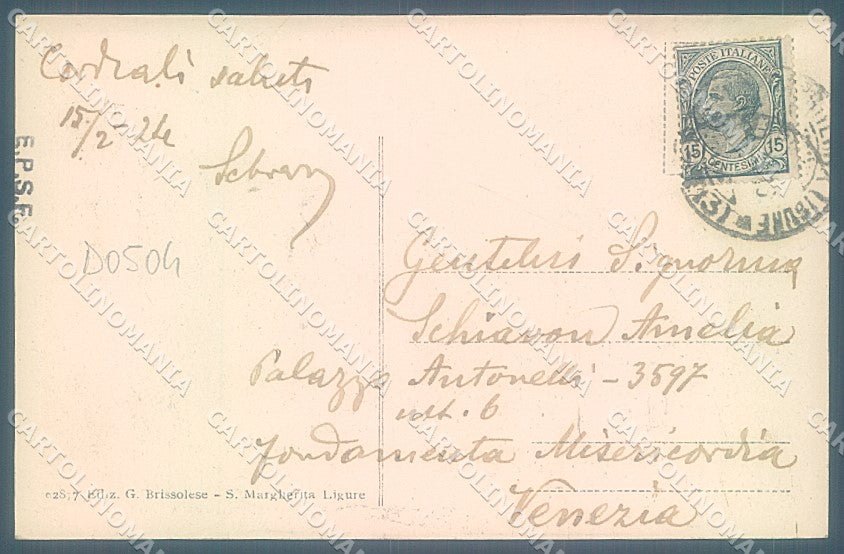 Cordiali saluti
15/2 - 24
E.P.S.E.
D0504
POSTE ITALIANE
15 15
CENTESIMI
LIGURE
Schiavon Amalia
Palazzo Antonelli - 3597
int. 6
fondamenta Misericordia
Venezia
Ediz. G. Brissolese - S. Margherita Ligure
CARTOLINOMANIA